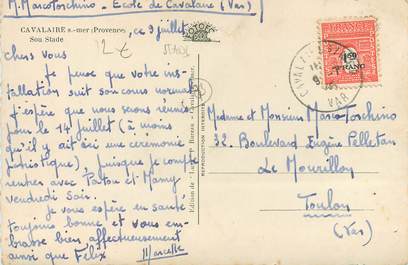 M. Marcotoschino - Ecole de Cavalaire (Var)
CAVALAIRE-s.-mer (Provence)
Son Stade
ce 9 juillet
12€
STADE
chers vous
Je pense que votre ins-
tallation suit son cours normal
J'espère que nous serons réunis
pour le 14 juillet (à moins
qu'il y ait ici une cérémonie
patriotique), puisque je compte
rentrer avec Paton et Mamy
vendredi soir.
Je vous espère en santé
toujours bonne et vous em-
brasse bien affectueusement
ainsi que Félix
Marcelle
REPRODUCTION INTERDITE
1F50
FRANC
VAR
Madame et Monsieur Marco Toschino
32, Boulevard Eugène Pelletan
Le Mourillon
Toulon
(Var)